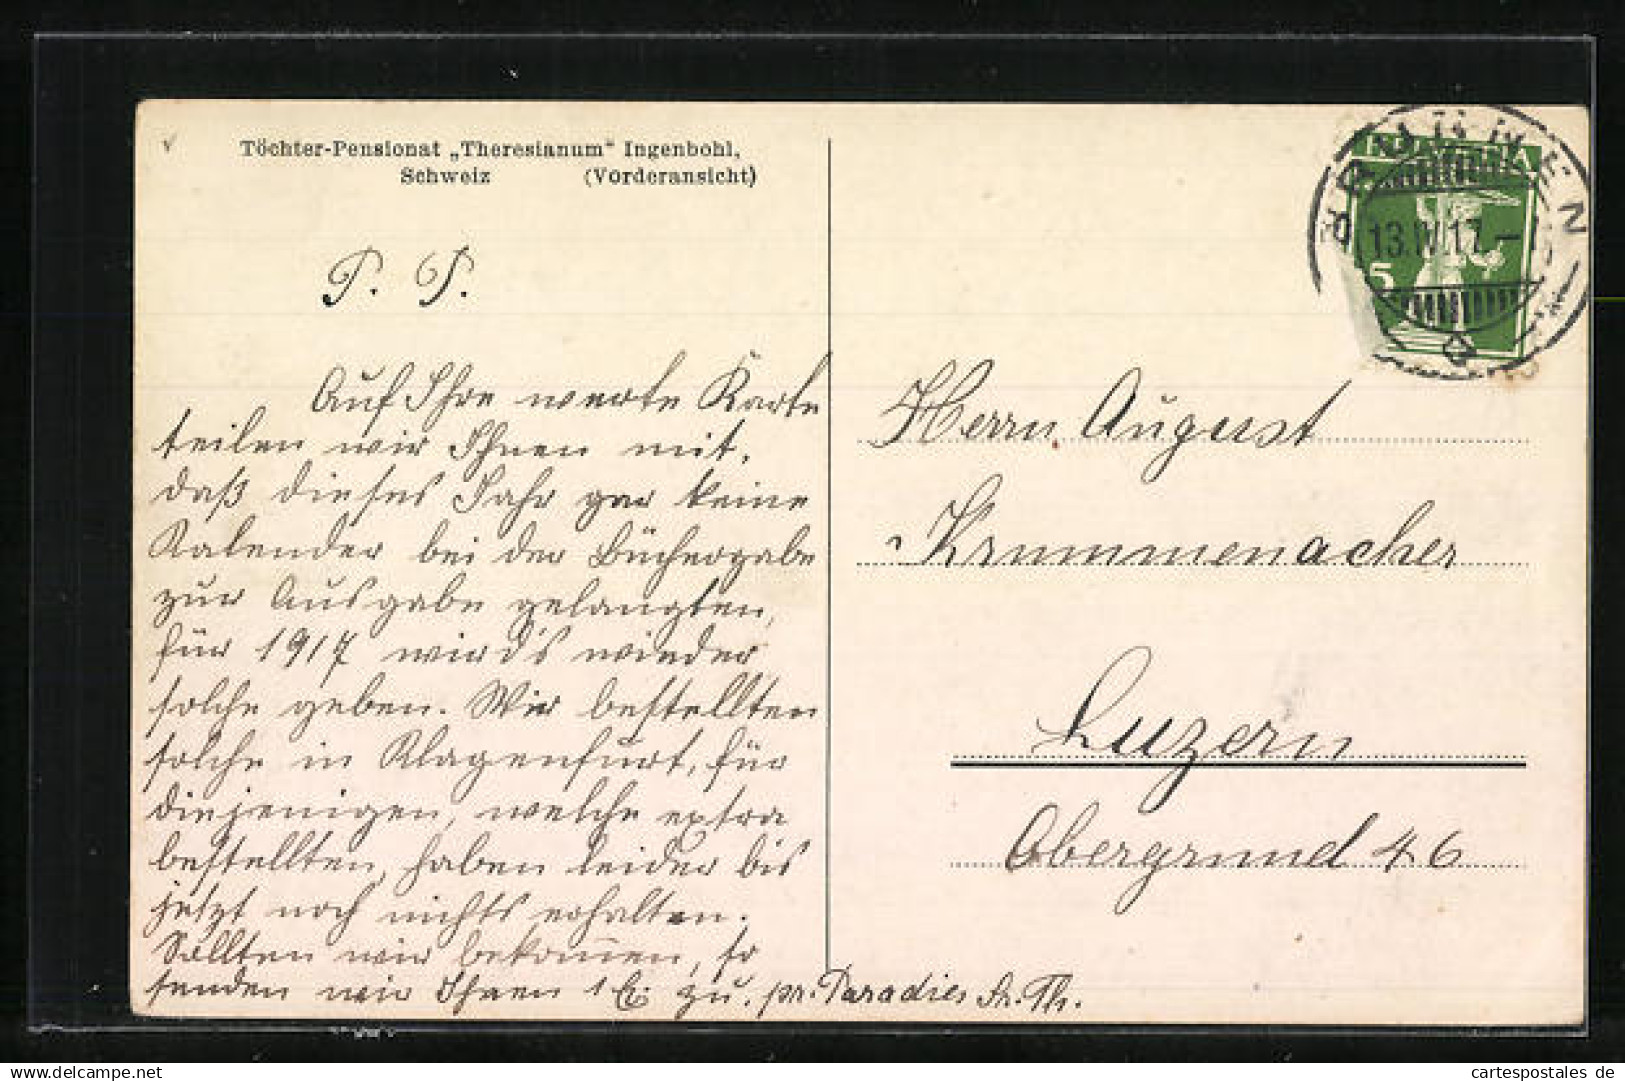 Töchter-Pensionat „Theresianum" Ingenbohl,
Schweiz (Vorderansicht)
P. P.
Auf Ihre werte Karte
teilen wir Ihnen mit,
daß dieses Jahr gar keine
Kalender bei der Büchergabe
zur Ausgabe gelangten,
für 1917 wird's wieder
solche geben. Wir bestellten
solche in Klagenfurt, für
diejenigen, welche extra
bestellten, haben leider bis
jetzt noch nichts erhalten.
Sollten wir bekommen, so
senden wir Ihnen 1 Ex. zu. pr. Paradies Sr. Th.
BRUNNEN
HELVETIA
13.IV.17.-
5
Herrn August
Krummenacher
Luzern
Obergrund 46
cartespostales-delcampe.net
cartespostales de